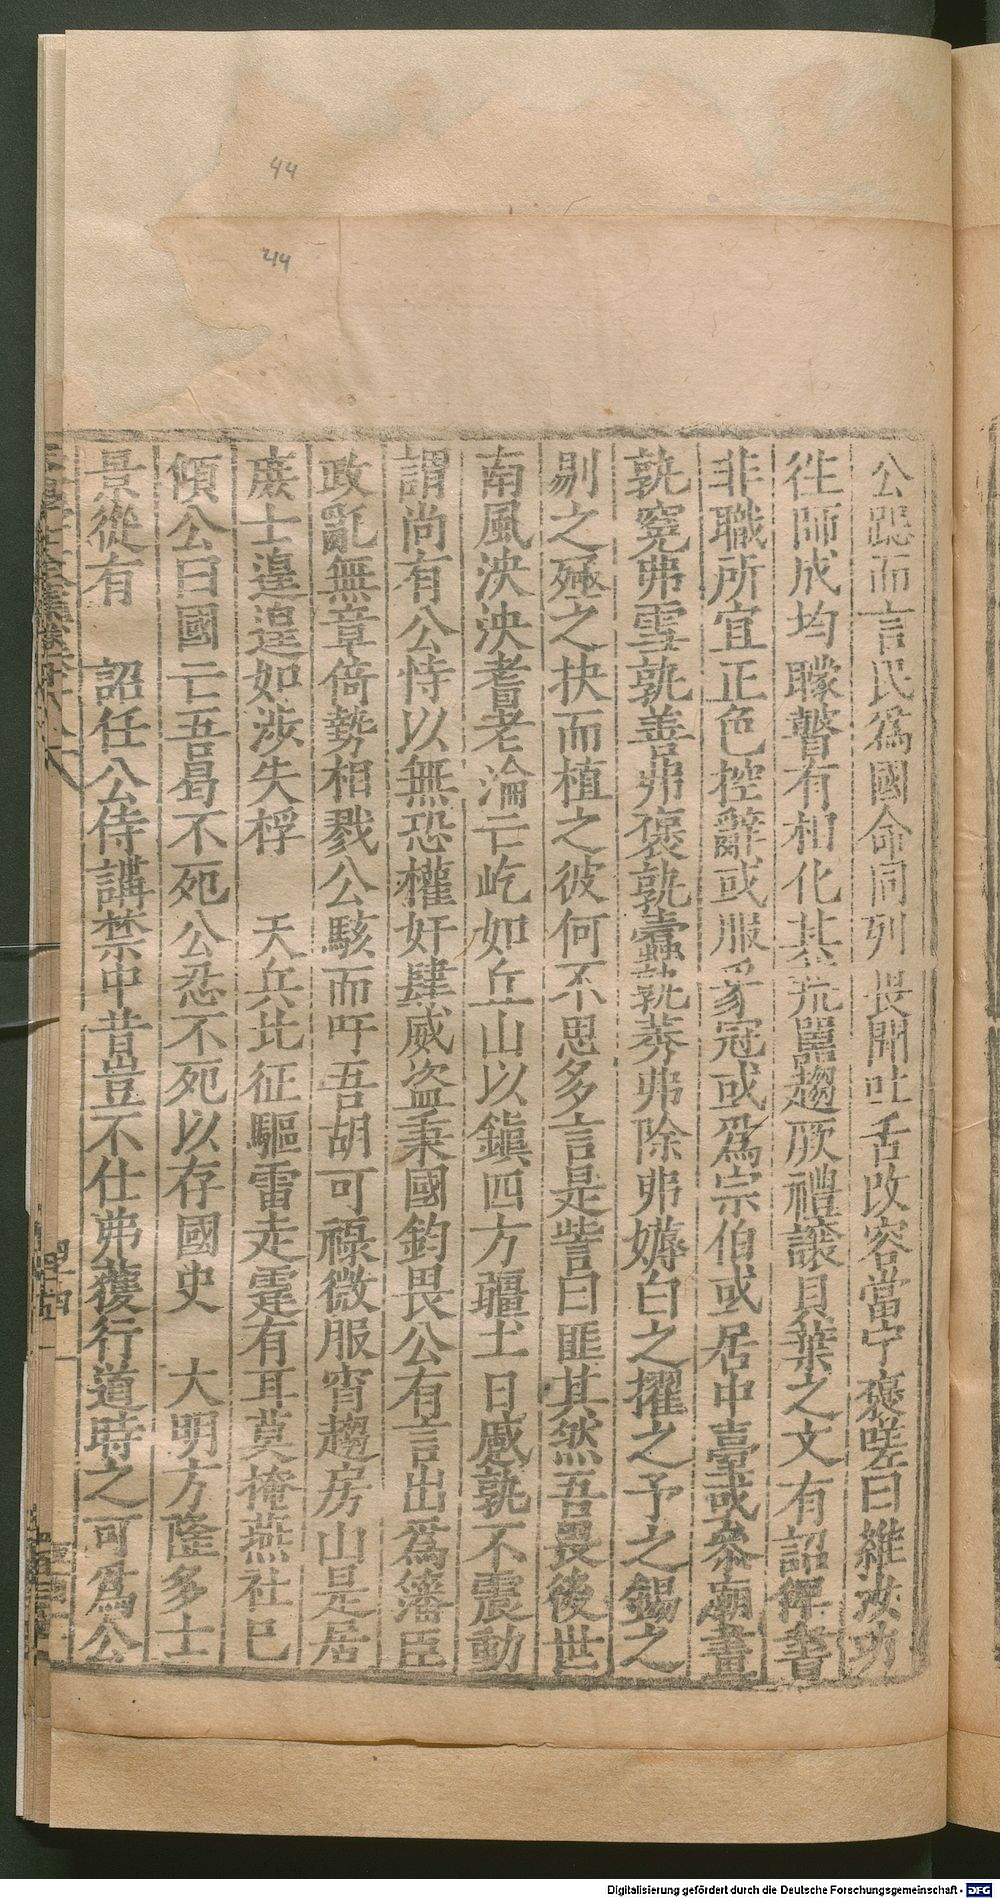 44
44
公跽而言民爲國命同列畏聞吐舌改容當宁褒嗟曰維汝功
徃師成均矇瞽有相化其荒嚚趨厥禮讓貝葉之文有詔俾書
非職所宜正色控辭或服豸冠或爲宗伯或居中臺或參廟畫
孰寃弗雪孰善弗褒孰蠹孰莠弗除弗媷白之擢之予之錫之
剔之殛之抉而植之彼何不思多言是訾曰匪其然吾畏後世
南風泱泱耆老淪亡屹如丘山以鎮四方疆土日慼孰不震動
謂尚有公恃以無恐權奸肆威盜秉國鈞畏公有言出爲藩臣
政亂無章倚勢相戮公駭而吁吾胡可祿微服宵趨房山是居
庶士遑遑如涉失桴 天兵比征驅雷走霆有耳莫掩燕社已
傾公曰國亡吾曷不死公忍不死以存國史 大明方隆多士
景從有 詔任公侍講禁中昔豈不仕弗獲行道時之可爲公
Digitalisierung gefördert durch die Deutsche Forschungsgemeinschaft - DFG